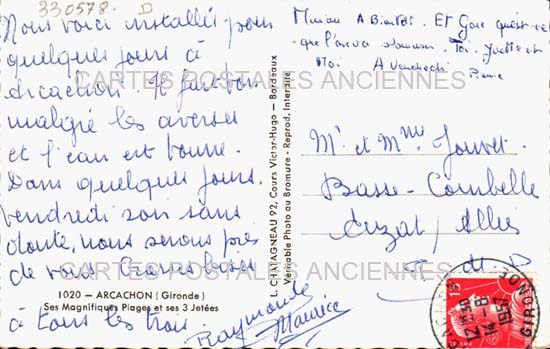 330578. D
Nous voici installés pour
quelques jours à
Arcachon. Il fait bon
malgré les averses
et l'eau est bonne.
Dans quelques jours.
vendredi soir sans
doute, nous serons près
de vous Grosses bises
1020 - ARCACHON (Gironde)
Ses Magnifiques Plages et ses 3 Jetées
à tous les trois.
Raymonde
Maurice
L. CHATAGNEAU 92, Cours Victor-Hugo - Bordeaux
Véritable Photo au Bromure - Reprod. Interdite
A Bientôt. Et Gare
que
Toi. Yvette et
Moi A Vendredi
Pierre
Mr et Mme Jouvet.
Basse-Combelle
Auzat s/ Allier
P. d. D
12H30
14-8
1957
GIRONDE
CARTES POSTALES ANCIENNES
CARTES POSTALES ANCIENNES
CARTES POSTALES ANCIENNES